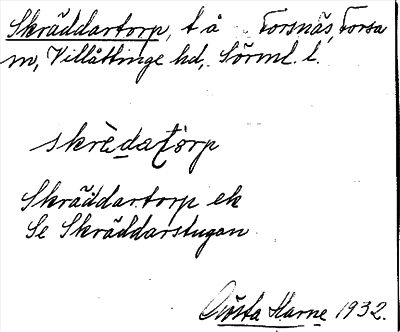 Skräddartorp, t å Forsnäs, Forsa
m, Villåttinge hd, Sörml. l.
skrèdatòrp
Skräddartorp ek
Se Skräddarstugan
Gösta Harne 1932.